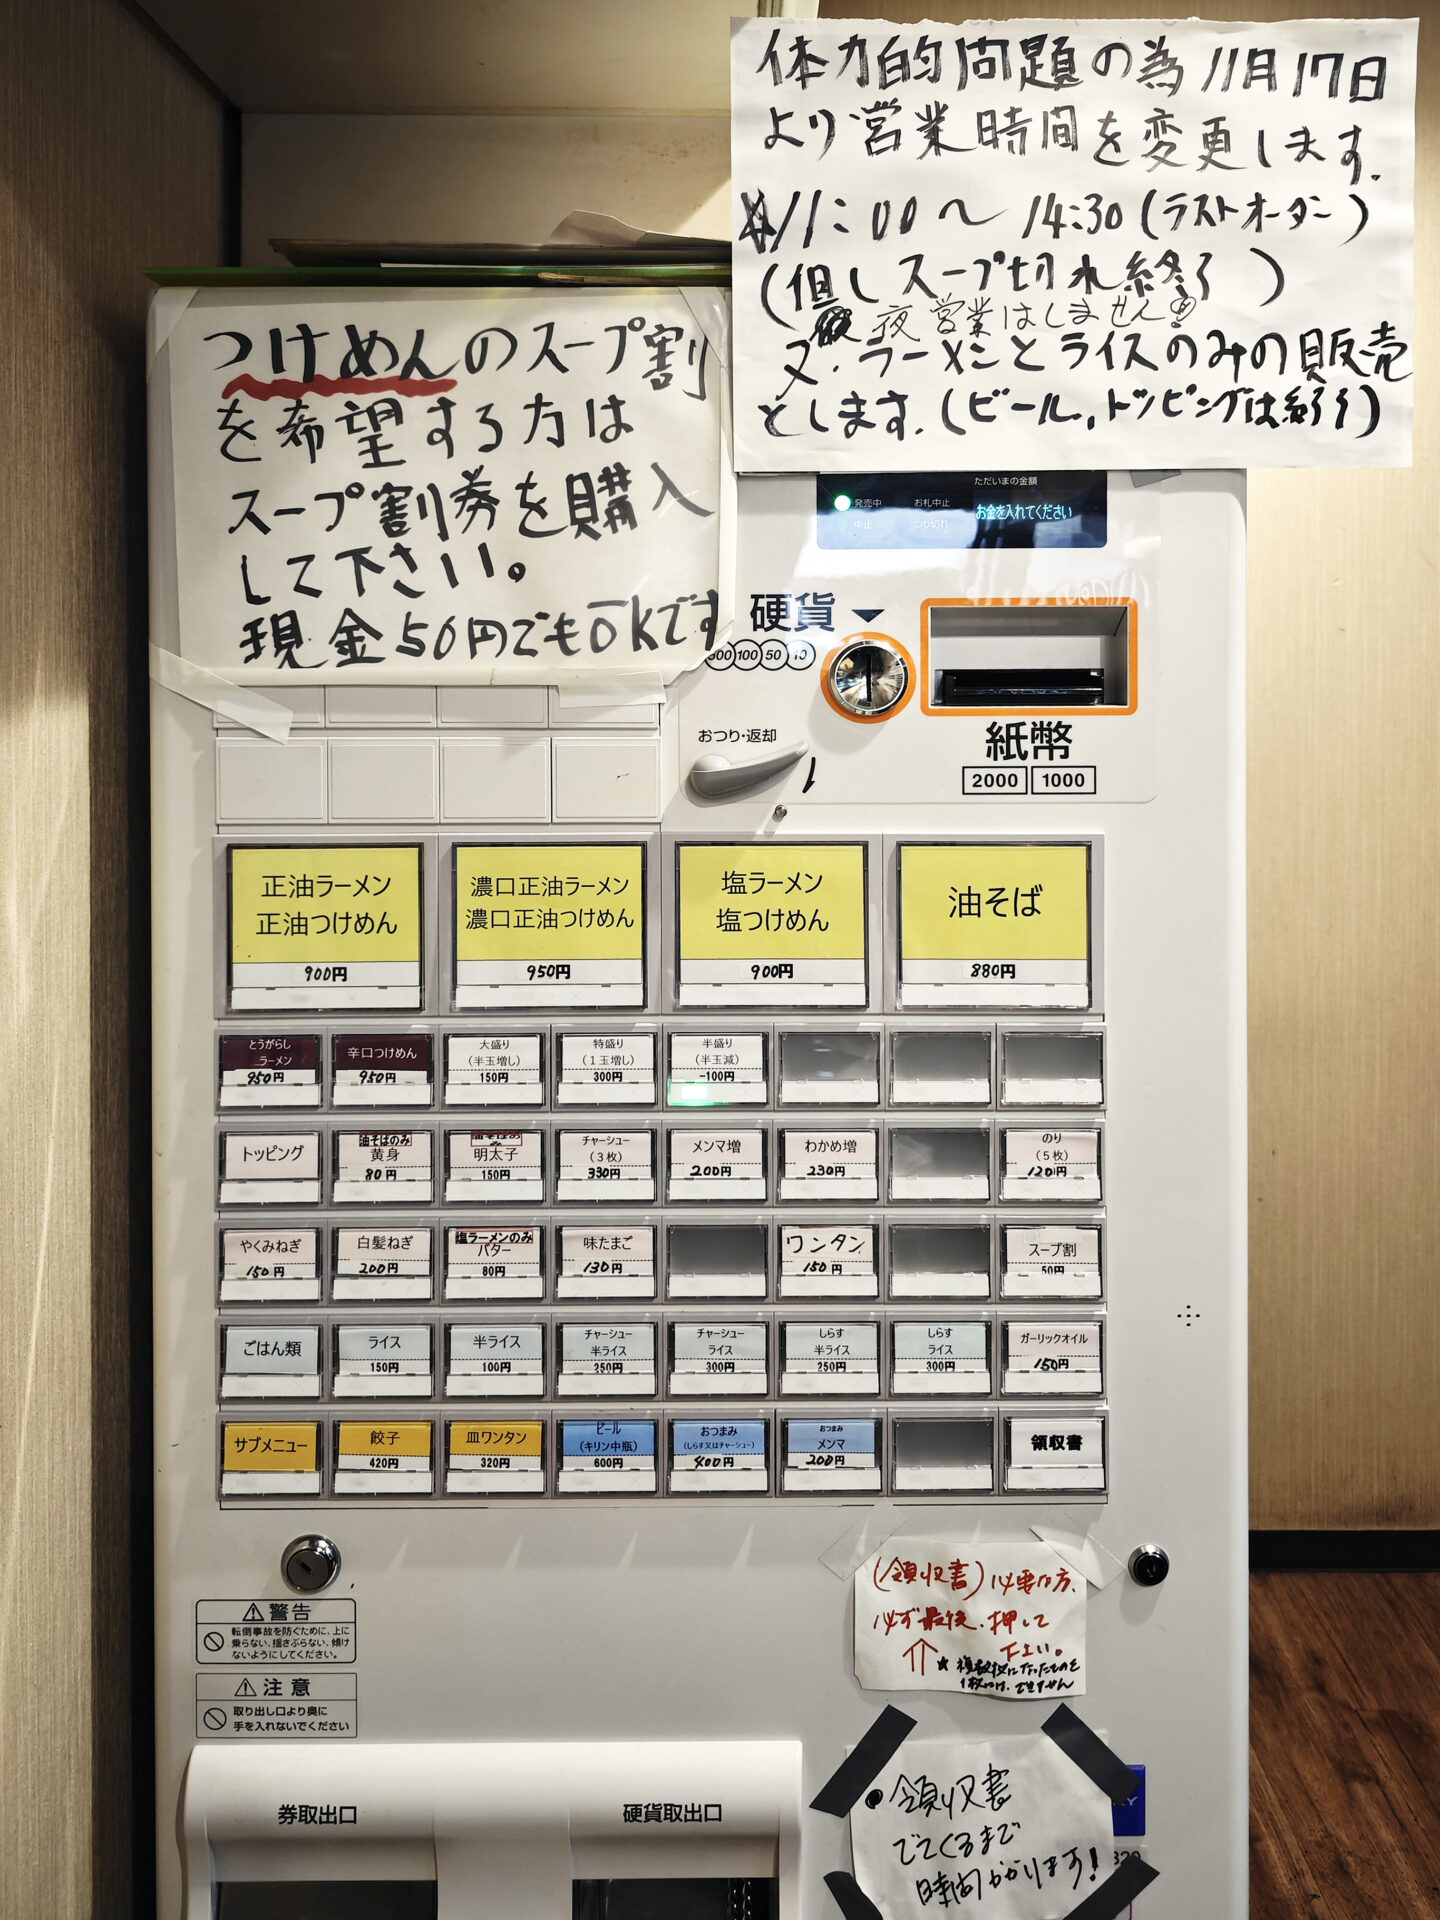 体力的問題の為11月17日
より営業時間を変更します.
11:00〜14:30(ラストオーダー)
(但しスープ切れ終了)
夜営業はしません
又、ラーメンとライスのみの販売
とします.(ビール,トッピングは終了)
つけめんのスープ割
を希望する方は
スープ割券を購入
して下さい。
現金50円でもOKです
ただいまの金額
発売中 お札中止 お金を入れてください
中止 つり切れ
硬貨
500 100 50 10
おつり・返却
紙幣
2000 1000
正油ラーメン
正油つけめん
900円
濃口正油ラーメン
濃口正油つけめん
950円
塩ラーメン
塩つけめん
900円
油そば
880円
とうがらし
ラーメン
950円
辛口つけめん
950円
大盛り
(半玉増し)
150円
特盛り
(1玉増し)
300円
半盛り
(半玉減)
-100円
トッピング
油そばのみ
黄身
80円
油そばのみ
明太子
150円
チャーシュー
(3枚)
330円
メンマ増
200円
わかめ増
230円
のり
(5枚)
120円
やくみねぎ
150円
白髪ねぎ
200円
塩ラーメンのみ
バター
80円
味たまご
130円
ワンタン
150円
スープ割
50円
ごはん類
ライス
150円
半ライス
100円
チャーシュー
半ライス
250円
チャーシュー
ライス
300円
しらす
半ライス
250円
しらす
ライス
300円
ガーリックオイル
150円
サブメニュー
餃子
420円
皿ワンタン
320円
ビール
(キリン中瓶)
600円
おつまみ
(しらす又はチャーシュー)
400円
おつまみ
メンマ
200円
領収書
(領収書)必要な方、
必ず最後、押して
下さい。
警告
転倒事故を防ぐために、上に
乗らない、揺さぶらない、傾け
ないようにしてください。
注意
取り出し口より奥に
手を入れないでください
券取出口
硬貨取出口
●領収書
でてくるまで
時間かかります!